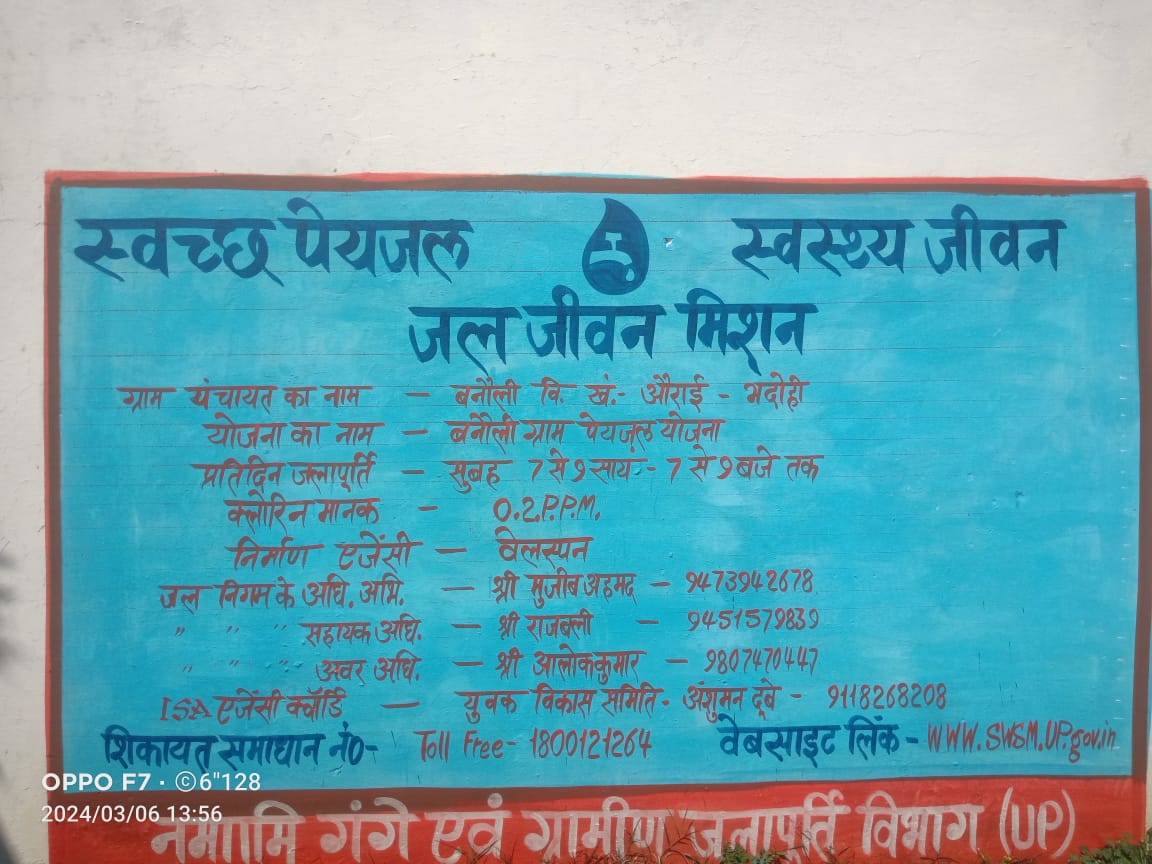 स्वच्छ पेयजल स्वस्थ्य जीवन
जल जीवन मिशन
ग्राम पंचायत का नाम — बनौली वि. खं.- औराई - भदोही
योजना का नाम — बनौली ग्राम पेयजल योजना
प्रतिदिन जलापूर्ति — सुबह 7 से 9 सायं:- 7 से 9 बजे तक
क्लोरिन मानक — 0.2.P.P.M.
निर्माण एजेंसी — वेलस्पन
जल निगम के अधि. अभि. — श्री मुजीब अहमद — 9473942678
" " " सहायक अधि. — श्री राजबली — 9451579839
" " " अवर अधि. — श्री आलोक कुमार — 9807470447
ISA एजेंसी क्वॉर्डि — युवक विकास समिति - अंशुमन दूबे - 9118268208
शिकायत समाधान नं०- Toll Free- 1800121264 वेबसाइट लिंक - WWW.SWSM.UP.gov.in
OPPO F7 · ©6"128
2024/03/06 13:56
नमामि गंगे एवं ग्रामीण जलापूर्ति विभाग (UP)